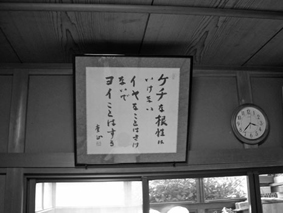 ケチな根性は
いけない
イヤなことはさけ
ないで
ヨイことはすき